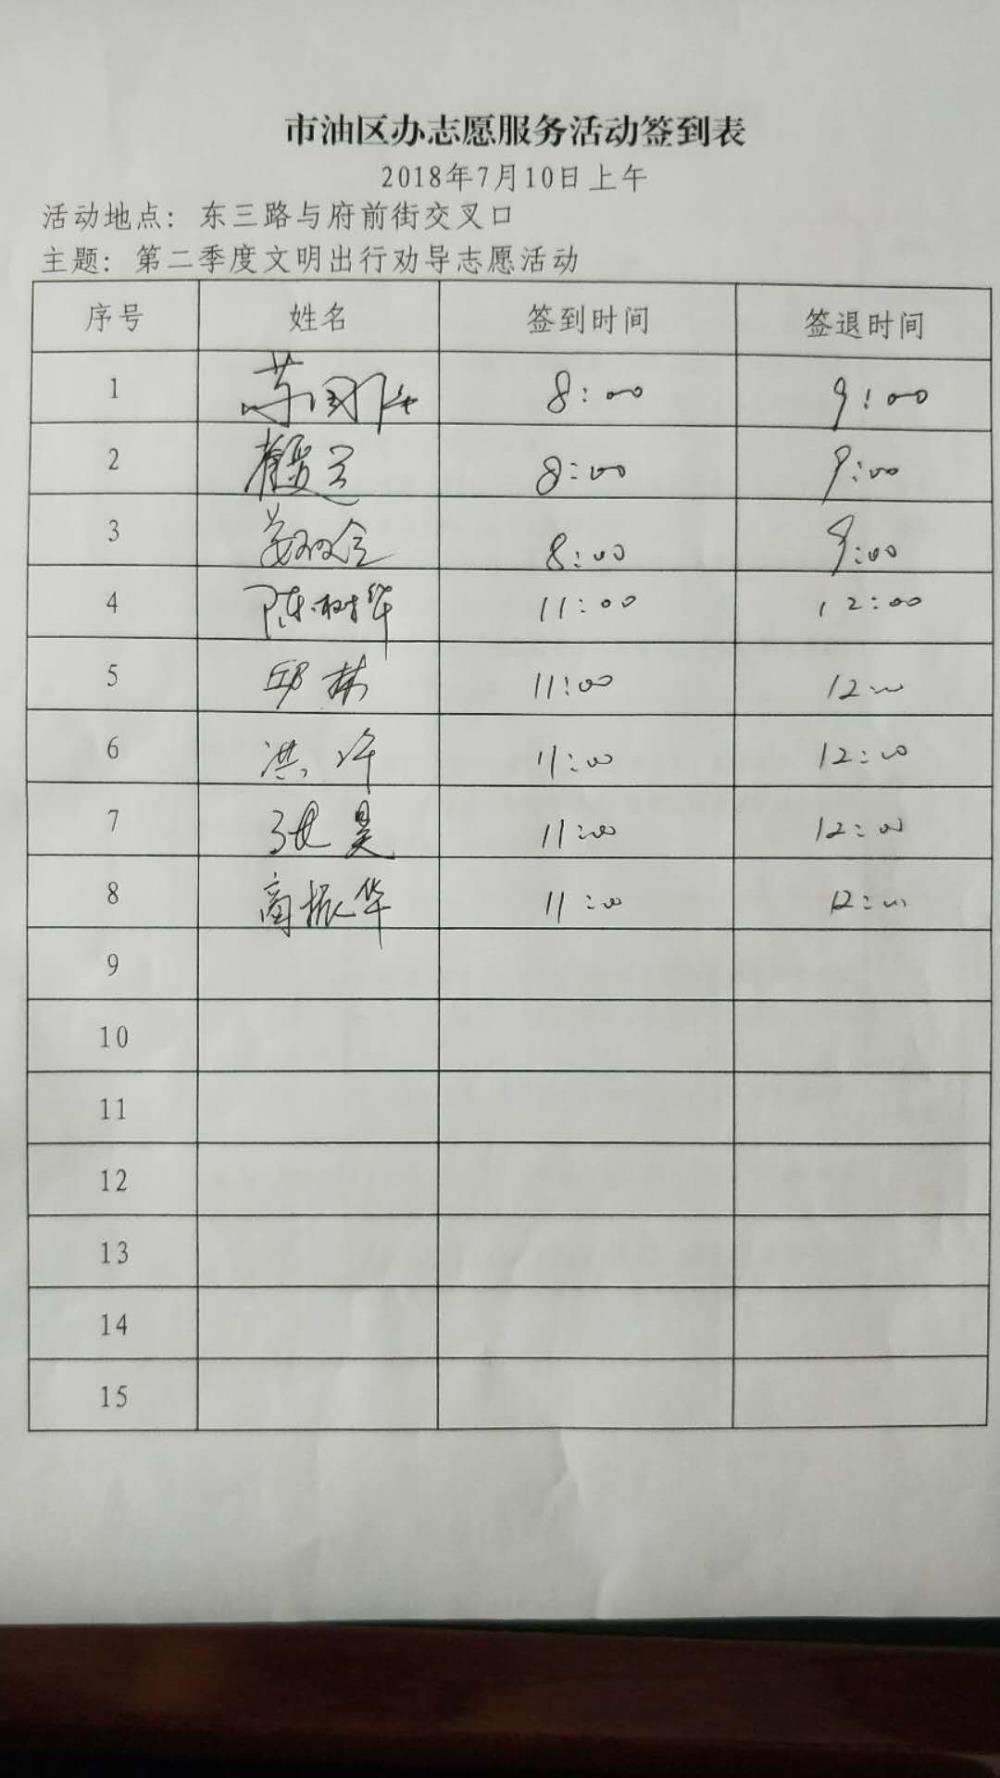 市油区办志愿服务活动签到表
2018年7月10日上午
活动地点：东三路与府前街交叉口
主题：第二季度文明出行劝导志愿活动
序号 姓名 签到时间 签退时间
1 8:00 9:00
2 8:00 9:00
3 8:00 9:00
4 陈树华 11:00 12:00
5 邱林 11:00 12:00
6 洪许 11:00 12:00
7 张昊 11:00 12:00
8 商振华 11:00 12:00
9
10
11
12
13
14
15